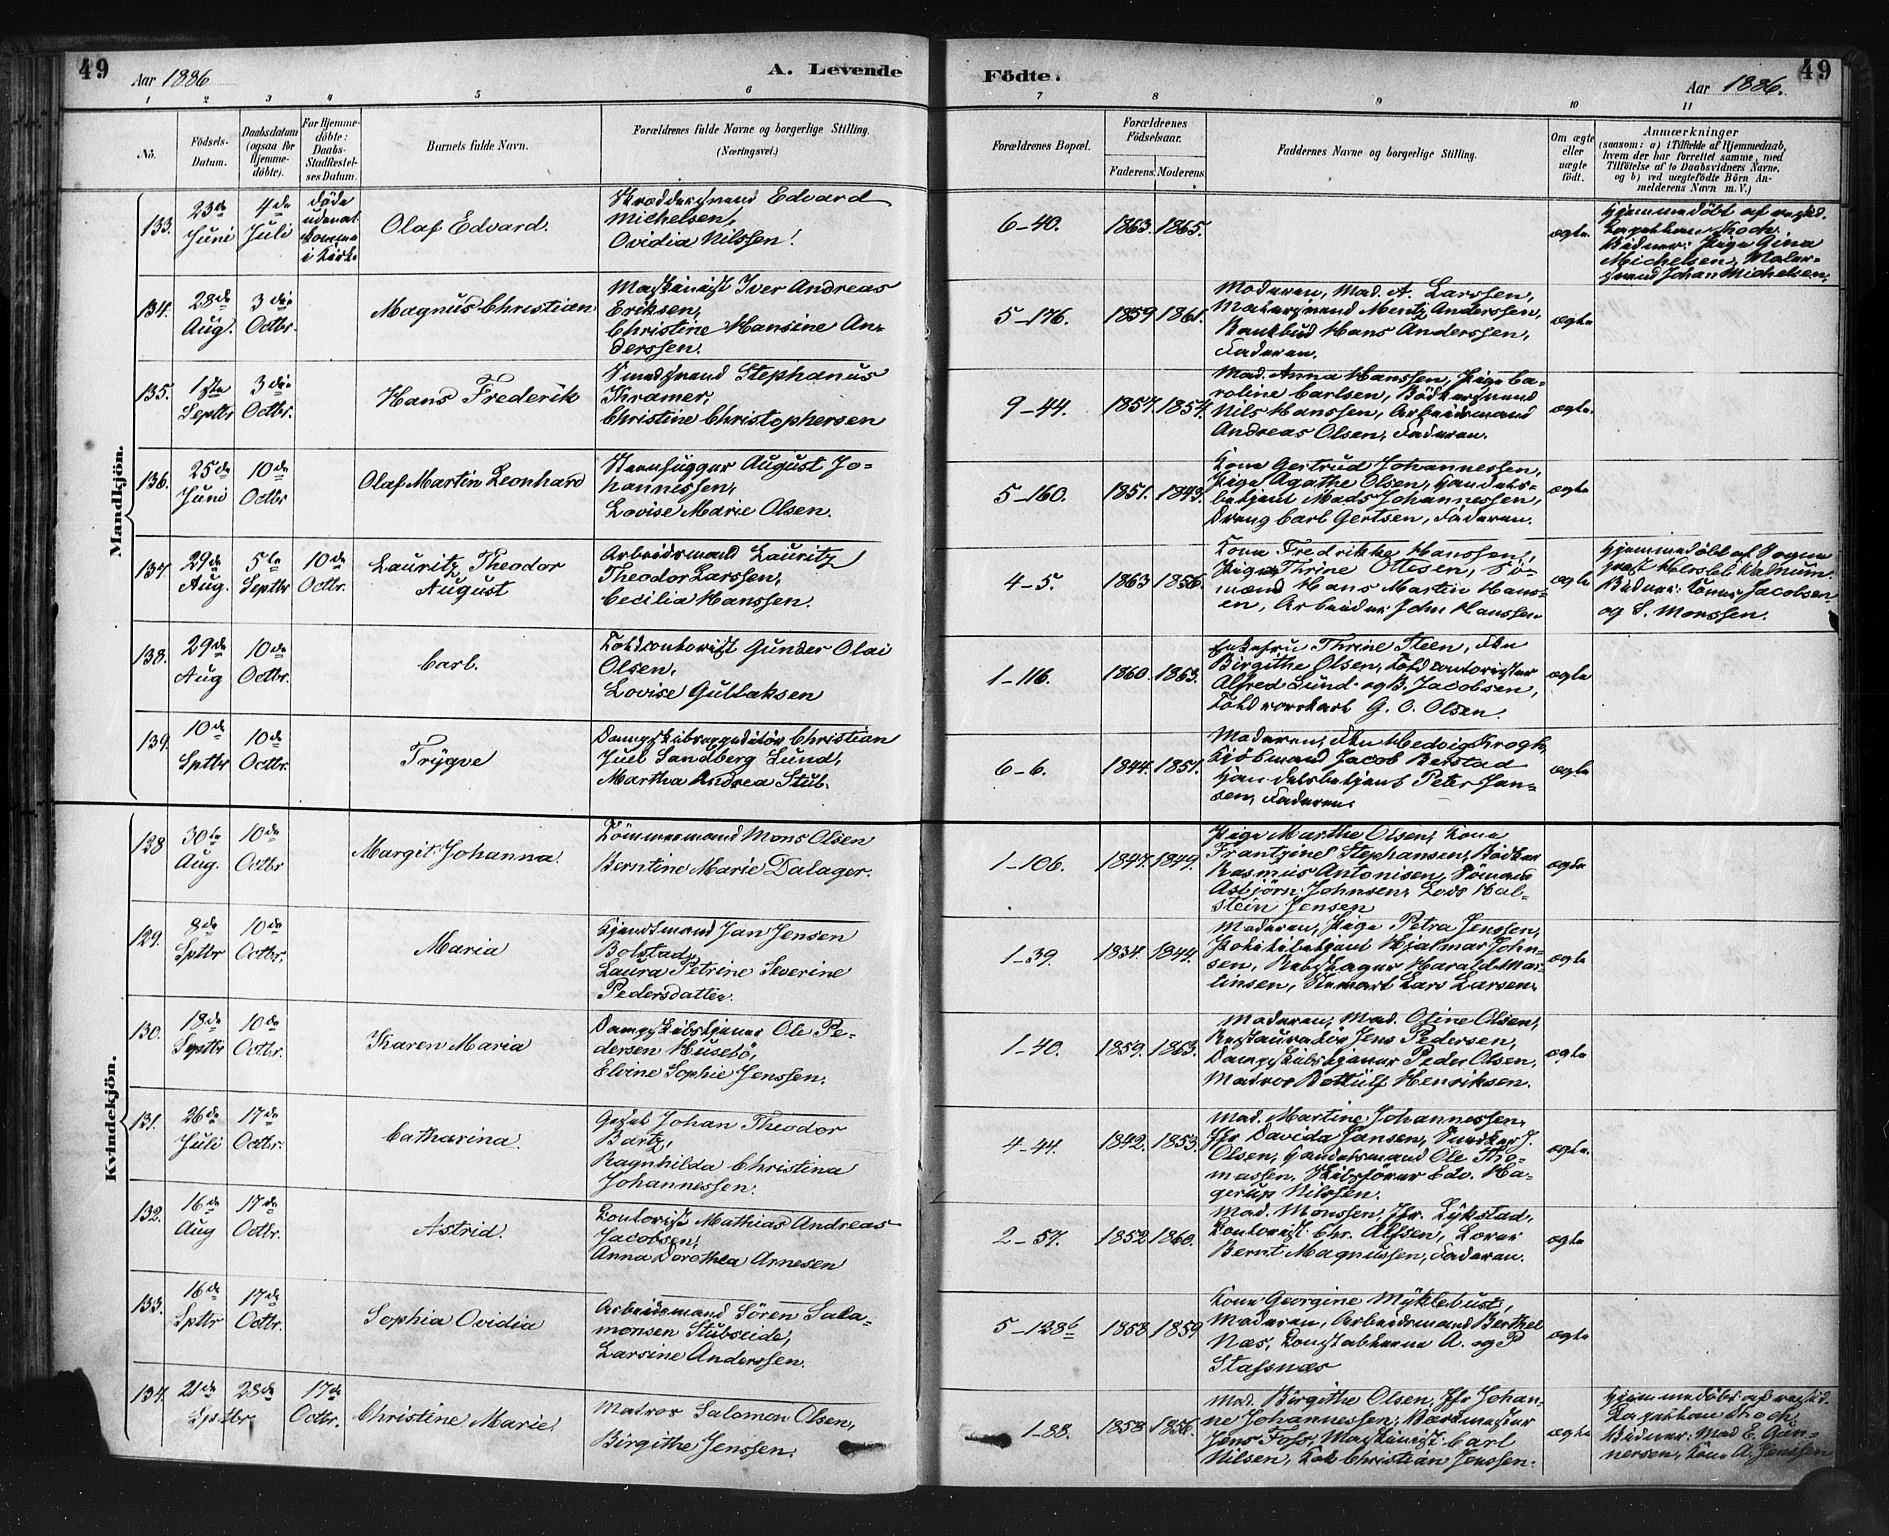 49
Aar 1886
A. Levende
Födte.
Aar 1886.
49
1 2 3 4 5 6 7 8 9 10 11
No.
Födsels-
Datum.
Daabsdatum
(ogsaa for
Hjemme-
döbte).
For Hjemme-
döbte:
Daabs-
Stadfæstel-
ses Datum.
Barnets fulde Navn.
Forældrenes fulde Navne og borgerlige Stilling.
(Næringsvei.)
Forældrenes Bopæl.
Forældrenes
Födselsaar.
Faderens. Moderens.
Faddernes Navne og borgerlige Stilling.
Om ægte
eller
uægte
födt.
Anmærkninger
(saasom: a) i Tilfælde af Hjemmedaab,
hvem der har forrettet samme, med
Tilföielse af to Daabsvidners Navne,
og b) ved uægtefödte Börn An-
melderens Navn m. V.)
Mandkjön.
133.
23de
Juni
4de
Juli
döde
uden at
komme
i Kirke
Olaf Edvard.
Skræddersvend Edvard
Michelsen,
Ovidia Nilssen.
6-40.
1863. 1865.
ægte.
Hjemmedöbt af resid.
Kapellan Koch.
Vidner: Pige Gina
Michelsen, Maler-
svend Johan Michelsen.
134.
28de
Aug.
3die
Octbr.
Magnus Christian
Maskinist Iver Andreas
Eriksen,
Christine Hansine An-
derssen.
5-176.
1859 1861.
Moderen, Mad. A. Larssen,
Malersvend Mentz Anderssen,
Bankbud Hans Anderssen,
Faderen.
ægte
135.
1ste
Septbr
3die
Octbr.
Hans Frederik
Smedsvend Stephanus
Kramer,
Christine Christophersen
9-44.
1857. 1854.
Mad. Anna Hanssen, Pige Ca-
roline Carlsen, Bödkersvend
Nils Hanssen, Arbeidsmand
Andreas Olsen, Faderen.
ægte.
136.
25de
Juni
10de
Octbr
Olaf Martin Leonhard
Stenhugger August Jo-
hannessen,
Lovise Marie Olsen.
5-160.
1851. 1843.
Kone Gertrud Johannessen,
Pige Agathe Olsen, Handels-
betjent Mads Johannessen,
Dreng Carl Gertsen, Faderen.
ægte
137.
29de
Aug.
5te
Septbr
10de
Octbr.
Lauritz Theodor
August
Arbeidsmand Lauritz
Theodor Larssen,
Cecilia Hanssen.
4-5.
1863 1856.
Kone Fredrikke Hanssen,
Pige Thrine Ottesen, Sö-
mænd Hans Martin Hans-
en, Arbeider John Hanssen
ægte
Hjemmedöbt af Sogne
præst Kelstel Walnum.
Vidner: Koner Jacobsen
og S. Monssen.
138.
29de
Aug
10de
Octbr.
Carl.
Toldcontorist Gunder Olai
Olsen,
Lovise Gullaksen
1-116.
1860. 1863.
Enkefru Thrine Steen, Frk
Birgithe Olsen, Toldcontorister
Alfred Lund og B. Jacobsen,
Toldoverbetj. G. O. Olsen.
ægte
139.
10de
Sptbr
10de
Octbr.
Trygve
Dampskibsexpeditör Christian
Juel Sandberg Lund,
Martha Andrea Stub.
6-6.
1844. 1851.
Moderen, Frk Hedvig Krogh,
Kjöbmand Jacob Berstad
Handelsbetjent Peter Jan-
sen, Faderen.
ægte
Kvindekjön.
128
30te
Aug.
10de
Octbr
Margit Johanna.
Tömmermand Mons Olsen
Berntine Marie Dalager.
1-106.
1847. 1849.
Pige Marthe Olsen, Kone
Frantzine Stephansen, Bödker
Rasmus Antonisen, Sömand
Asbjörn Johnsen, Lods Hal-
stein Jensen
ægte
129.
8de
Sptbr
10de
Octbr.
Maria
Hjeulmand Jan Jensen
Bolstad,
Laura Petrine Severine
Pedersdatter.
1-39.
1834. 1844.
Moderen, Pige Petra Jenssen,
Politibetjent Hjalmar John-
sen, Rebslager Harald Mar-
tinsen, Lars Larsen.
ægte
130.
18de
Septbr
10de
Octbr.
Karen Maria
Dampskibstjener Ole Pe-
dersen Husebö,
Elvine Sophie Jenssen.
1-40.
1859. 1863.
Moderen, Mad. Oline Olsen,
Restauratör Jens Pedersen,
Dampskibstjener Peder Olsen,
Matros Botluf Henriksen.
ægte
131.
26de
Juli
17de
Octbr.
Catharina.
Gesel Johan Theodor
Bartz,
Ragnhilda Christina
Johannessen.
4-44.
1842. 1853.
Mad. Martine Johannessen,
Jfr Davida Jansen, Snedker J.
Olsen, Handelsmand Ole Tho-
massen, Skibsförer Edv. Ha-
gerup Nilssen.
ægte.
132.
16de
Aug
17de
Octbr.
Astrid.
Contorist Mathias Andreas
Jacobsen,
Anna Dorothea Arnesen
2-57.
1852 1860.
Mad. Monssen, Jfr. Lykstad,
Contorist Chr. Alfsen, Lærer
Bernt Magnussen, Faderen.
ægte
133.
16de
Sptbr
17de
Octbr.
Sophia Ovidia
Arbeidsmand Sören Sala-
monsen Stubseide,
Larsine Anderssen.
5-128b
1858 1859
Kone Georgine Myklebust,
Moderen, Arbeidsmand Berthel
Næs, Konstablerne A. og P
Stafsnæs
ægte
134.
21de
Sptbr
28de
17de
Octbr.
Christine Marie
Matros Salomon Olsen,
Birgithe Jenssen.
1-88.
1858. 1856.
Mad. Birgithe Olsen, Jfr Johan-
ne Johannessen, Værtmester
Jens Foss, Maskinist Carl
Nilsen, Kok Christian Jenssen.
ægte
Hjemmedöbt af resid.
Kapellan Koch.
Vidner: Mad E. Gun-
nersen, Kone A. Jenssen